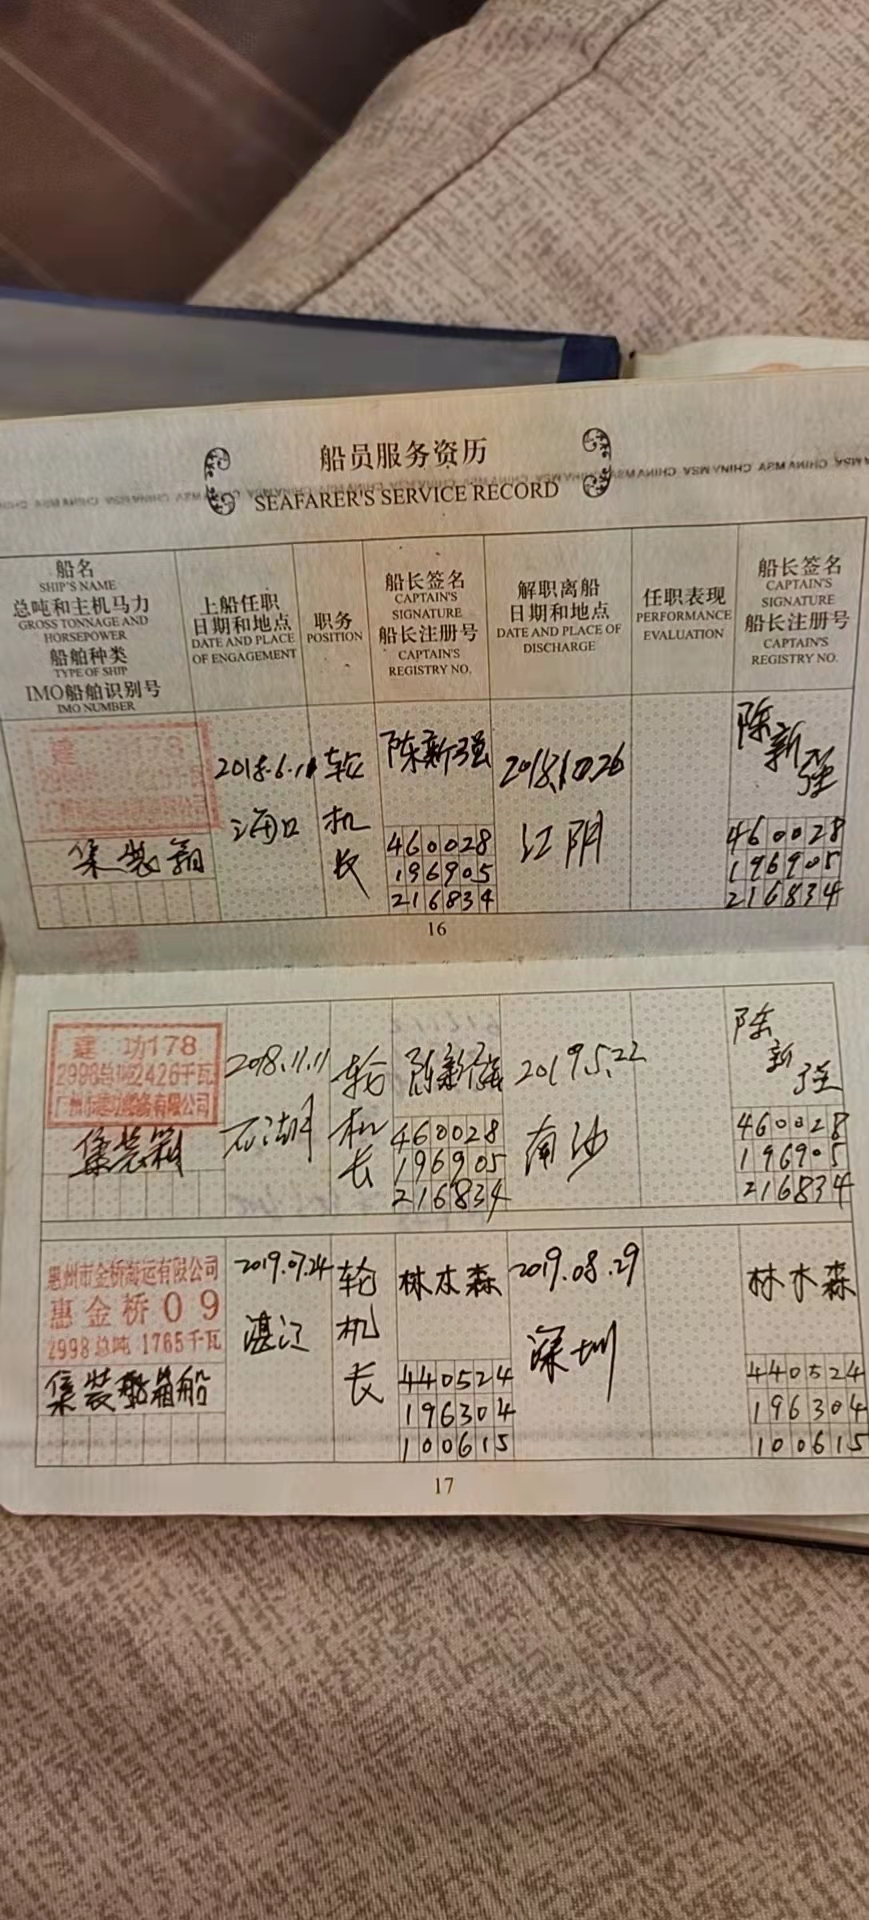 船员服务资历
SEAFARER'S SERVICE RECORD
船名
SHIP'S NAME
总吨和主机马力
GROSS TONNAGE AND
HORSEPOWER
船舶种类
TYPE OF SHIP
IMO船舶识别号
IMO NUMBER
上船任职
日期和地点
DATE AND PLACE
OF ENGAGEMENT
职务
POSITION
船长签名
CAPTAIN'S
SIGNATURE
船长注册号
CAPTAIN'S
REGISTRY NO.
解职离船
日期和地点
DATE AND PLACE OF
DISCHARGE
任职表现
PERFORMANCE
EVALUATION
船长签名
CAPTAIN'S
SIGNATURE
船长注册号
CAPTAIN'S
REGISTRY NO.
集装箱
2018.6.11
海口
轮
机
长
陈新强
460028
196905
216834
2018.10.26
江阴
陈
新
强
460028
196905
216834
16
建功178
2998总吨2426千瓦
集装箱
2018.11.11
石湖
轮
机
长
陈新强
460028
196905
216834
2019.5.22
南沙
陈
新
强
460028
196905
216834
惠州市金桥海运有限公司
惠金桥09
2998总吨 1765千瓦
集装箱船
2019.07.24
湛江
轮
机
长
林木森
440524
196304
100615
2019.08.29
深圳
林木森
440524
196304
100615
17